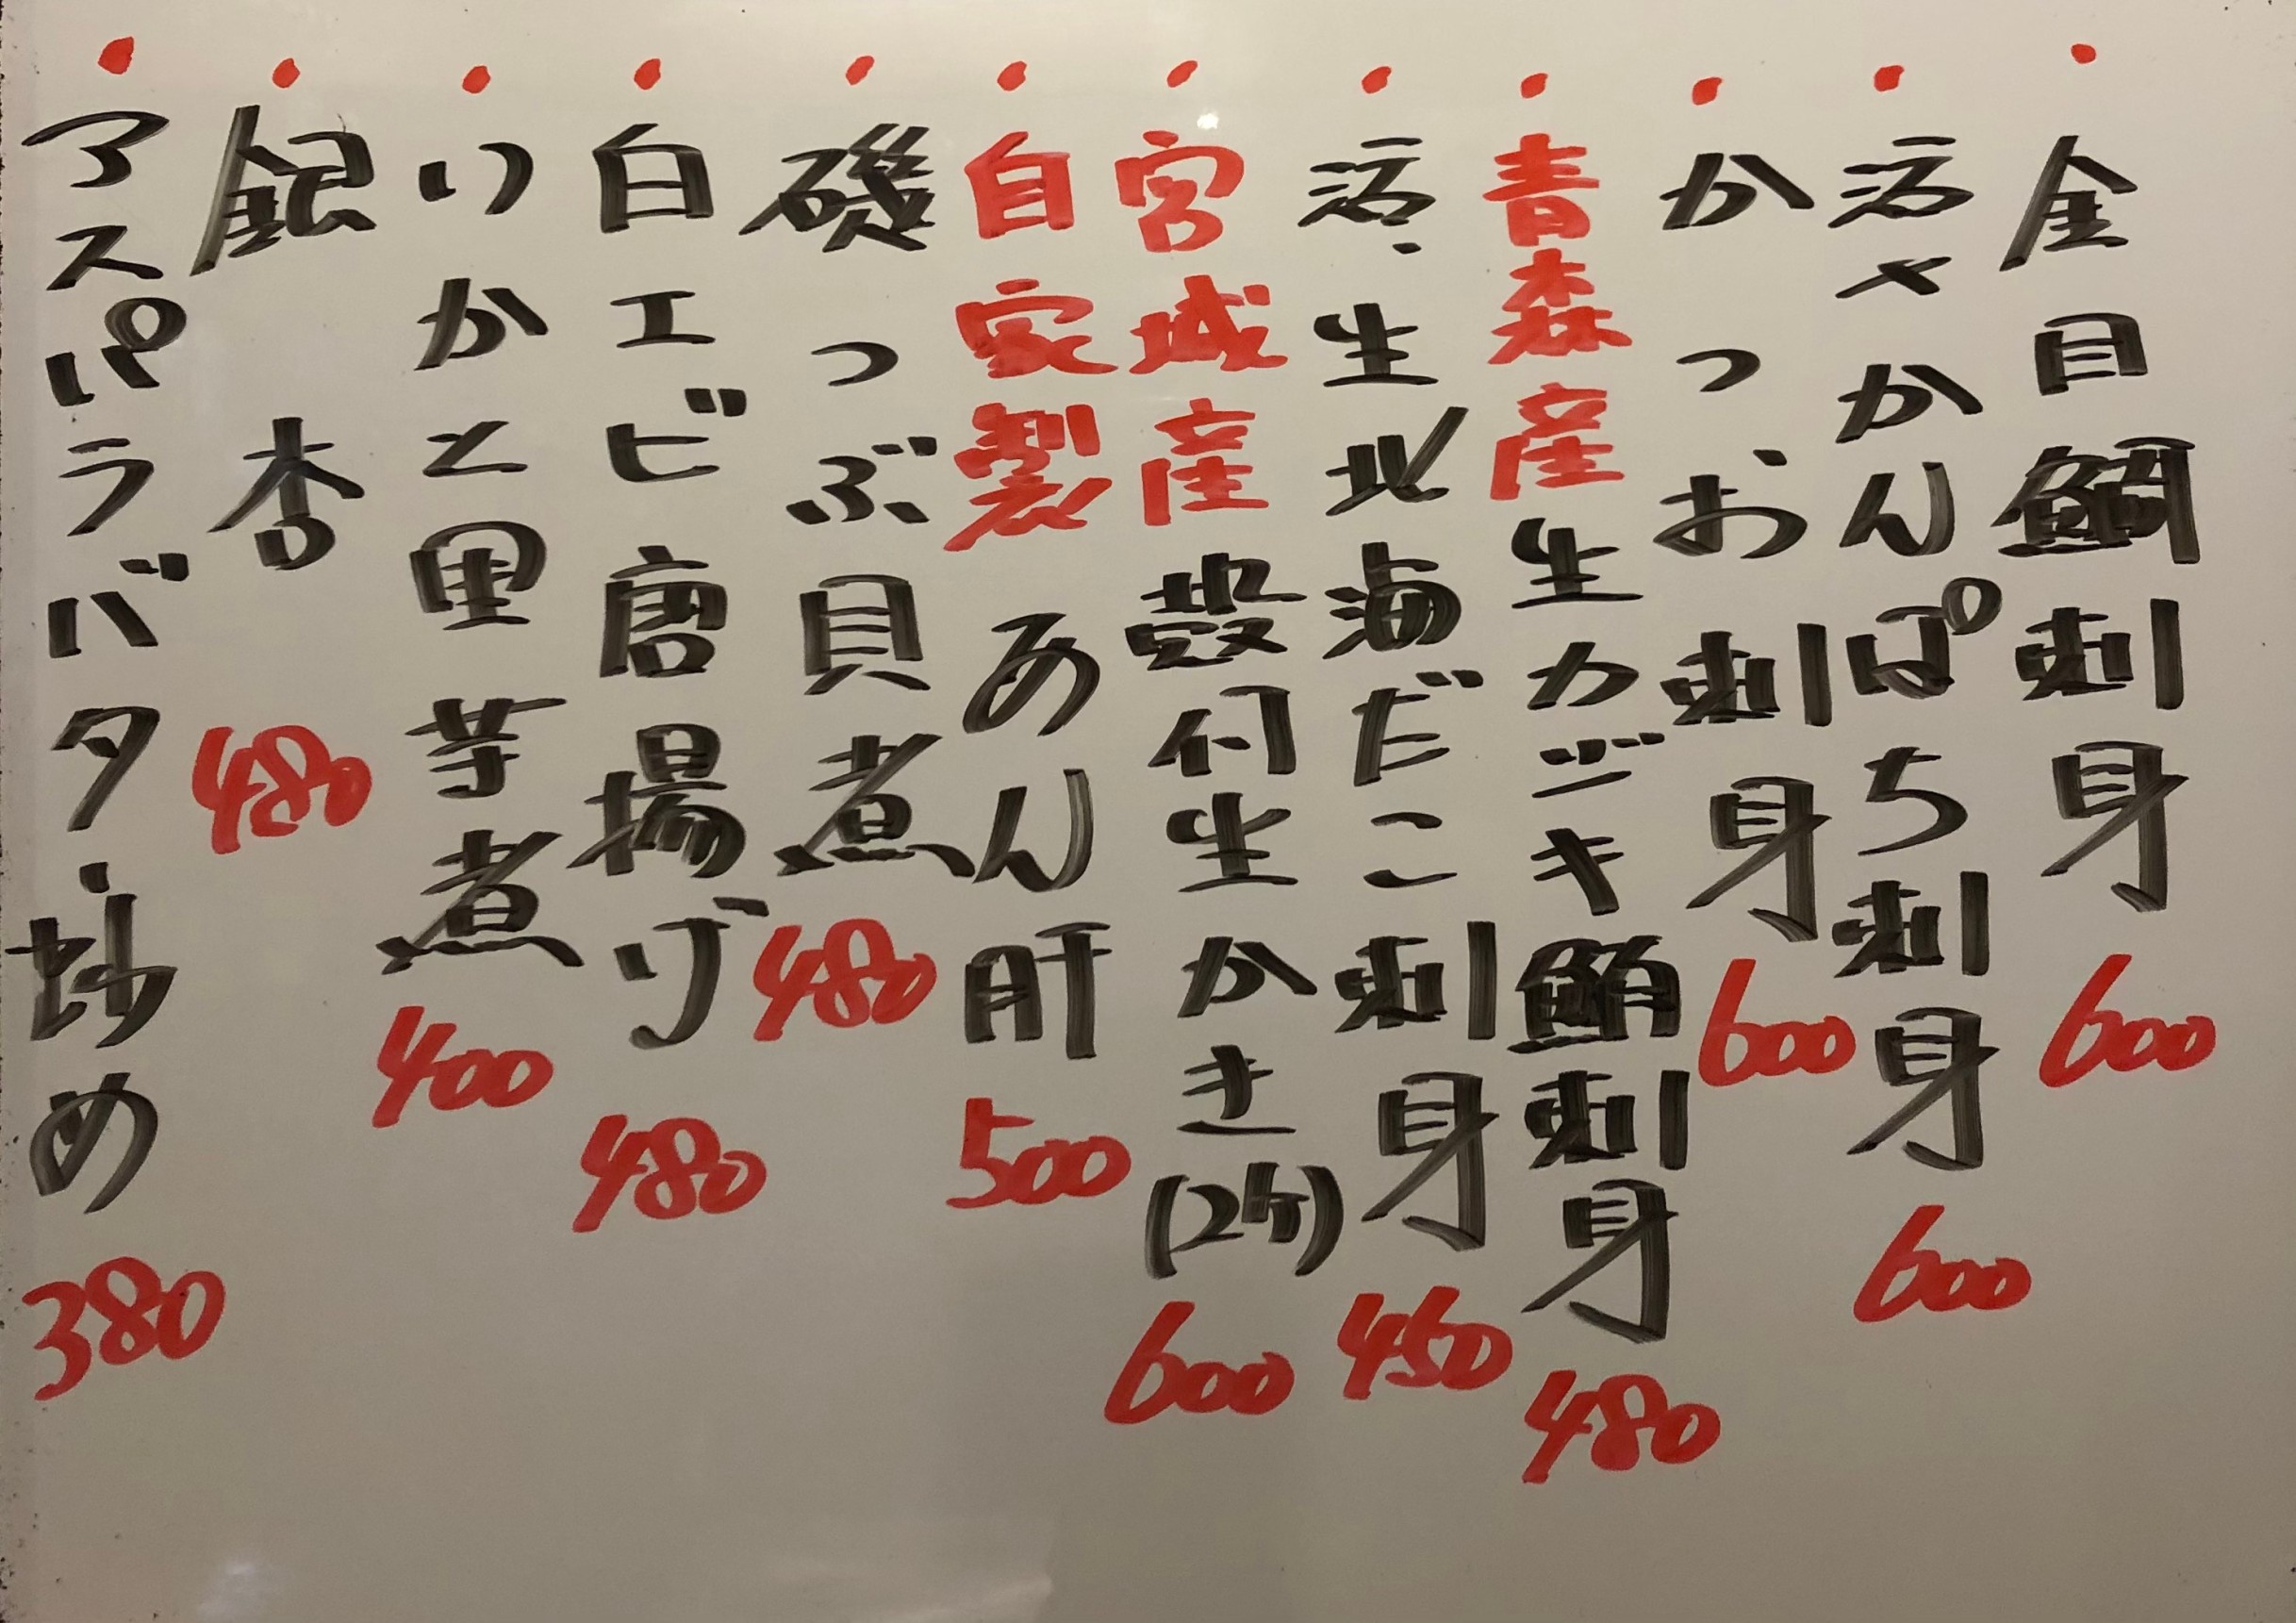 ・金目鯛刺身 600
・活〆かんぱち刺身 600
・かつお刺身 600
・青森産生カジキ鮪刺身 480
・活、生北海だこ刺身 450
・宮城産殻付生かき(2ケ) 600
・自家製あん肝 500
・磯つぶ貝煮 480
・白エビ唐揚げ 480
・いかと里芋煮 400
・銀杏 480
・アスパラバター炒め 380